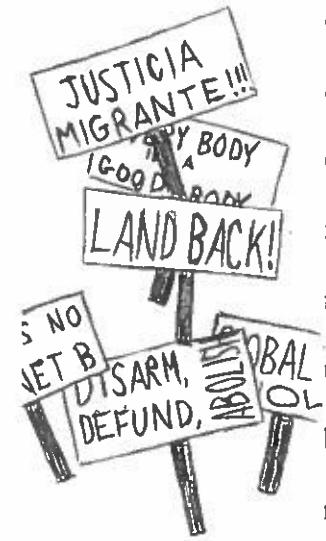 JUSTICIA
MIGRANTE!!!
BODY
A
GOOD
BODY
LAND BACK!
S NO
NET B
DISARM,
DEFUND,
ABOLISH
OBAL
OL